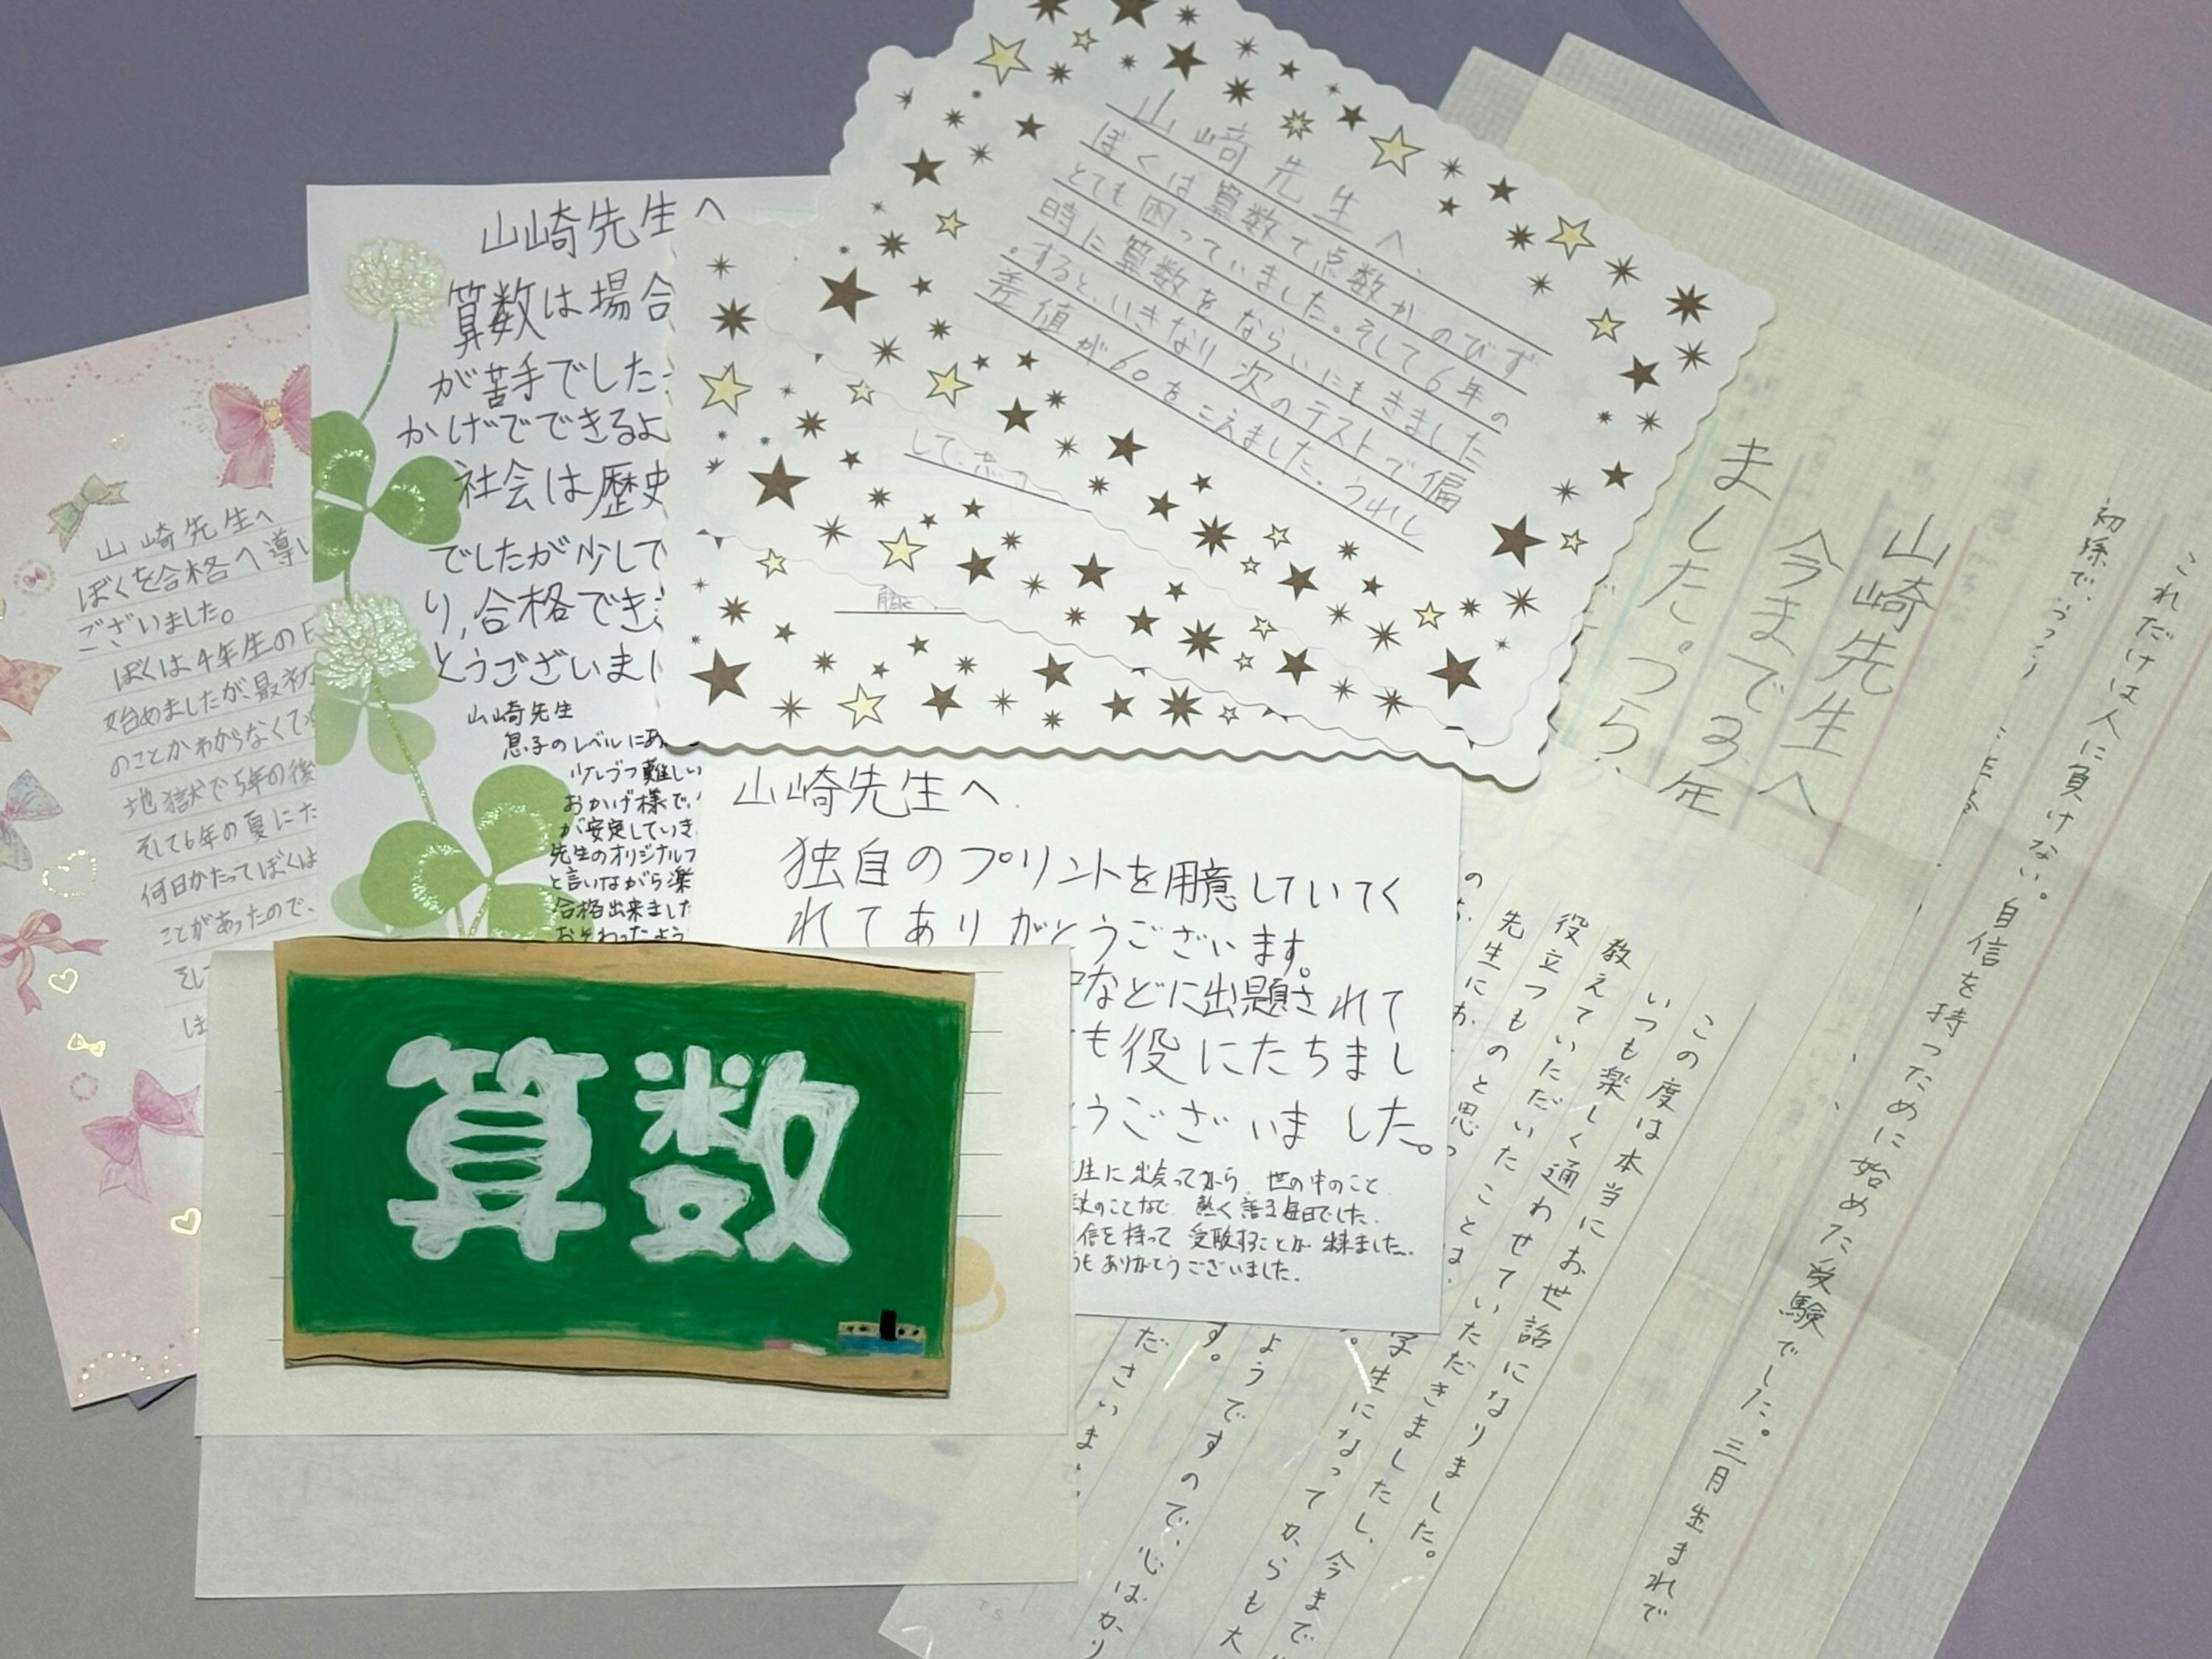 山崎先生へ
ぼくを合格へ導い
ございました。
ぼくは4年生の
始めましたが、最初
のことがわからなくて
地獄で5年の後
そして6年の夏にた
何日かたってぼくは
ことがあったので、
そし
山崎先生へ
算数は場合
が苦手でした
かげでできるよ
社会は歴史
でしたが少して
り,合格でき
とうございまし
山崎先生
息子のレベルにあ
少しづつ難しい
おかげ様で、
が安定していき
先生のオリジナルプ
と言いながら楽
合格出来ました
おそわったよう
山崎先生へ
ぼくは算数で点数がのびず
とても困っていました。そして6年の
時に算数をならいにもきました
。すると、いきなり次のテストで偏
差値が60をこえました。うれし
して、
山崎先生へ
独自のプリントを用意していてく
れてありがとうございます。
などに出題されて
も役にたちまし
うございました。
生に出会ってから、世の中のこと
のことなど、熱く語る毎日でした。
信を持って受験することが出来ました。
うもありがとうございました。
算数
山崎先生へ
今まで3年
ました。つら
これだけは人に負けない。自信を持つために始めた受験でした。三月生まれで
初孫で、
この度は本当にお世話になりました。
いつも楽しく通わせていただきましたし、今まで
教えていただいたことは、
役立つものと思
先生にお
学生になってからも大
ようですので、心ばかり
す。
ださいま